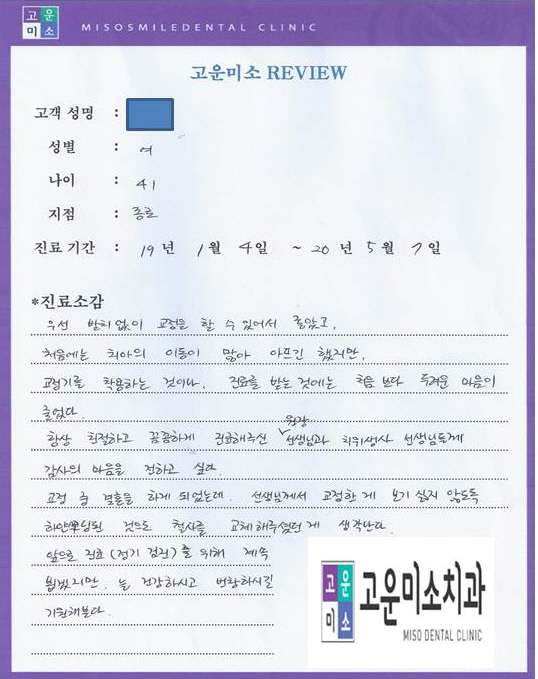 고운미소 MISOSMILEDENTAL CLINIC
고운미소 REVIEW
고객 성명 :
성별 : 여
나이 : 41
지점 : 종로
진료 기간 : 19 년 1 월 4 일 ~ 20 년 5 월 7 일
*진료소감
우선 발치없이 교정을 할 수 있어서 좋았고,
처음에는 치아의 이동이 많아 아프긴 했지만,
교정기를 착용하는 것이나, 진료를 받는 것에는 처음 보다 두려운 마음이
줄었다.
항상 친절하고 꼼꼼하게 진료해주신 원장 선생님과 치위생사 선생님들께
감사의 마음을 전하고 싶다.
교정 중 결혼을 하게 되었는데, 선생님께서 교정한 게 보기 싫지 않도록
하얀 코팅된 것으로 철사를 교체해주셨던 게 생각난다.
앞으로 진료(정기 검진)를 위해 계속
뵙겠지만, 늘 건강하시고 번창하시길
기원해본다.
고운미소
고운미소치과
MISO DENTAL CLINIC